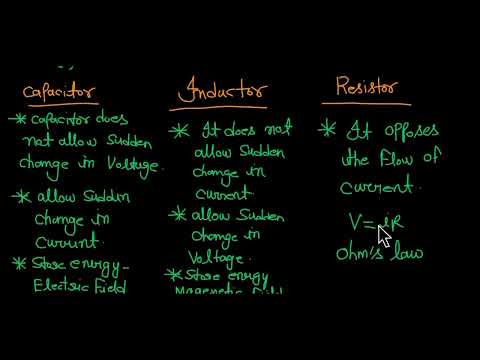 Capacitor
* Capacitor does
not allow Sudden
change in Voltage.
* allow Suddin
change in
Current.
* Store energy-
Electric Field
Inductor
* It does not
allow Sudden
change in
current.
* allow Sudden
Change in
Voltage.
* Store energy
Magenetic Field
Resistor
* It opposes
the Flow of
current.
V=iR
Ohm's law